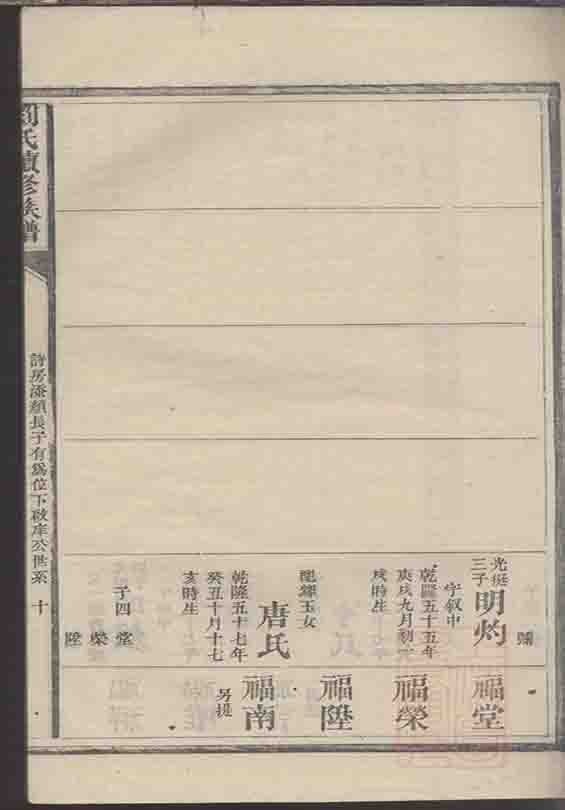 歸
光挺
三子
明灼
字叙中
乾隆五十五年
庚戌九月初
戌時生
配
玉女
唐氏
乾隆五十七年
癸丑十月十七
亥時生
子四
堂
榮
陞
福堂
福榮
福陞
福南
另提
劉氏續修族譜
詩房添類長子有為位下啟庠公世系
十